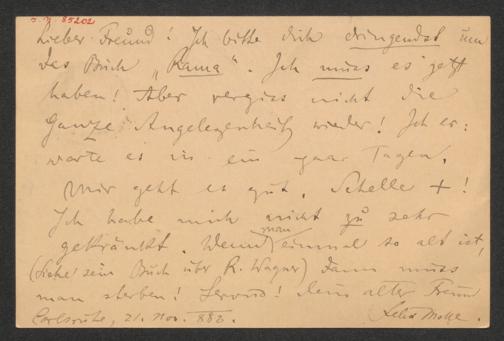 S. H. 85202
Lieber Freund! Ich bitte dich dringendst um
das Buch „Rama“. Ich muss es jetzt
haben! Aber vergiss nicht die
Ganze Angelegenheit wieder! Ich er:
warte es in ein paar Tagen.
Mir geht es gut. Schelle +!
Ich habe mich nicht zu sehr
gekränkt. Wenn man einmal so alt ist,
(Siehe sein Buch über R. Wagner) dann muss
man sterben! Servus! Dein alter Freund
Carlsruhe, 21. Nov. 882. Felix Mottl.